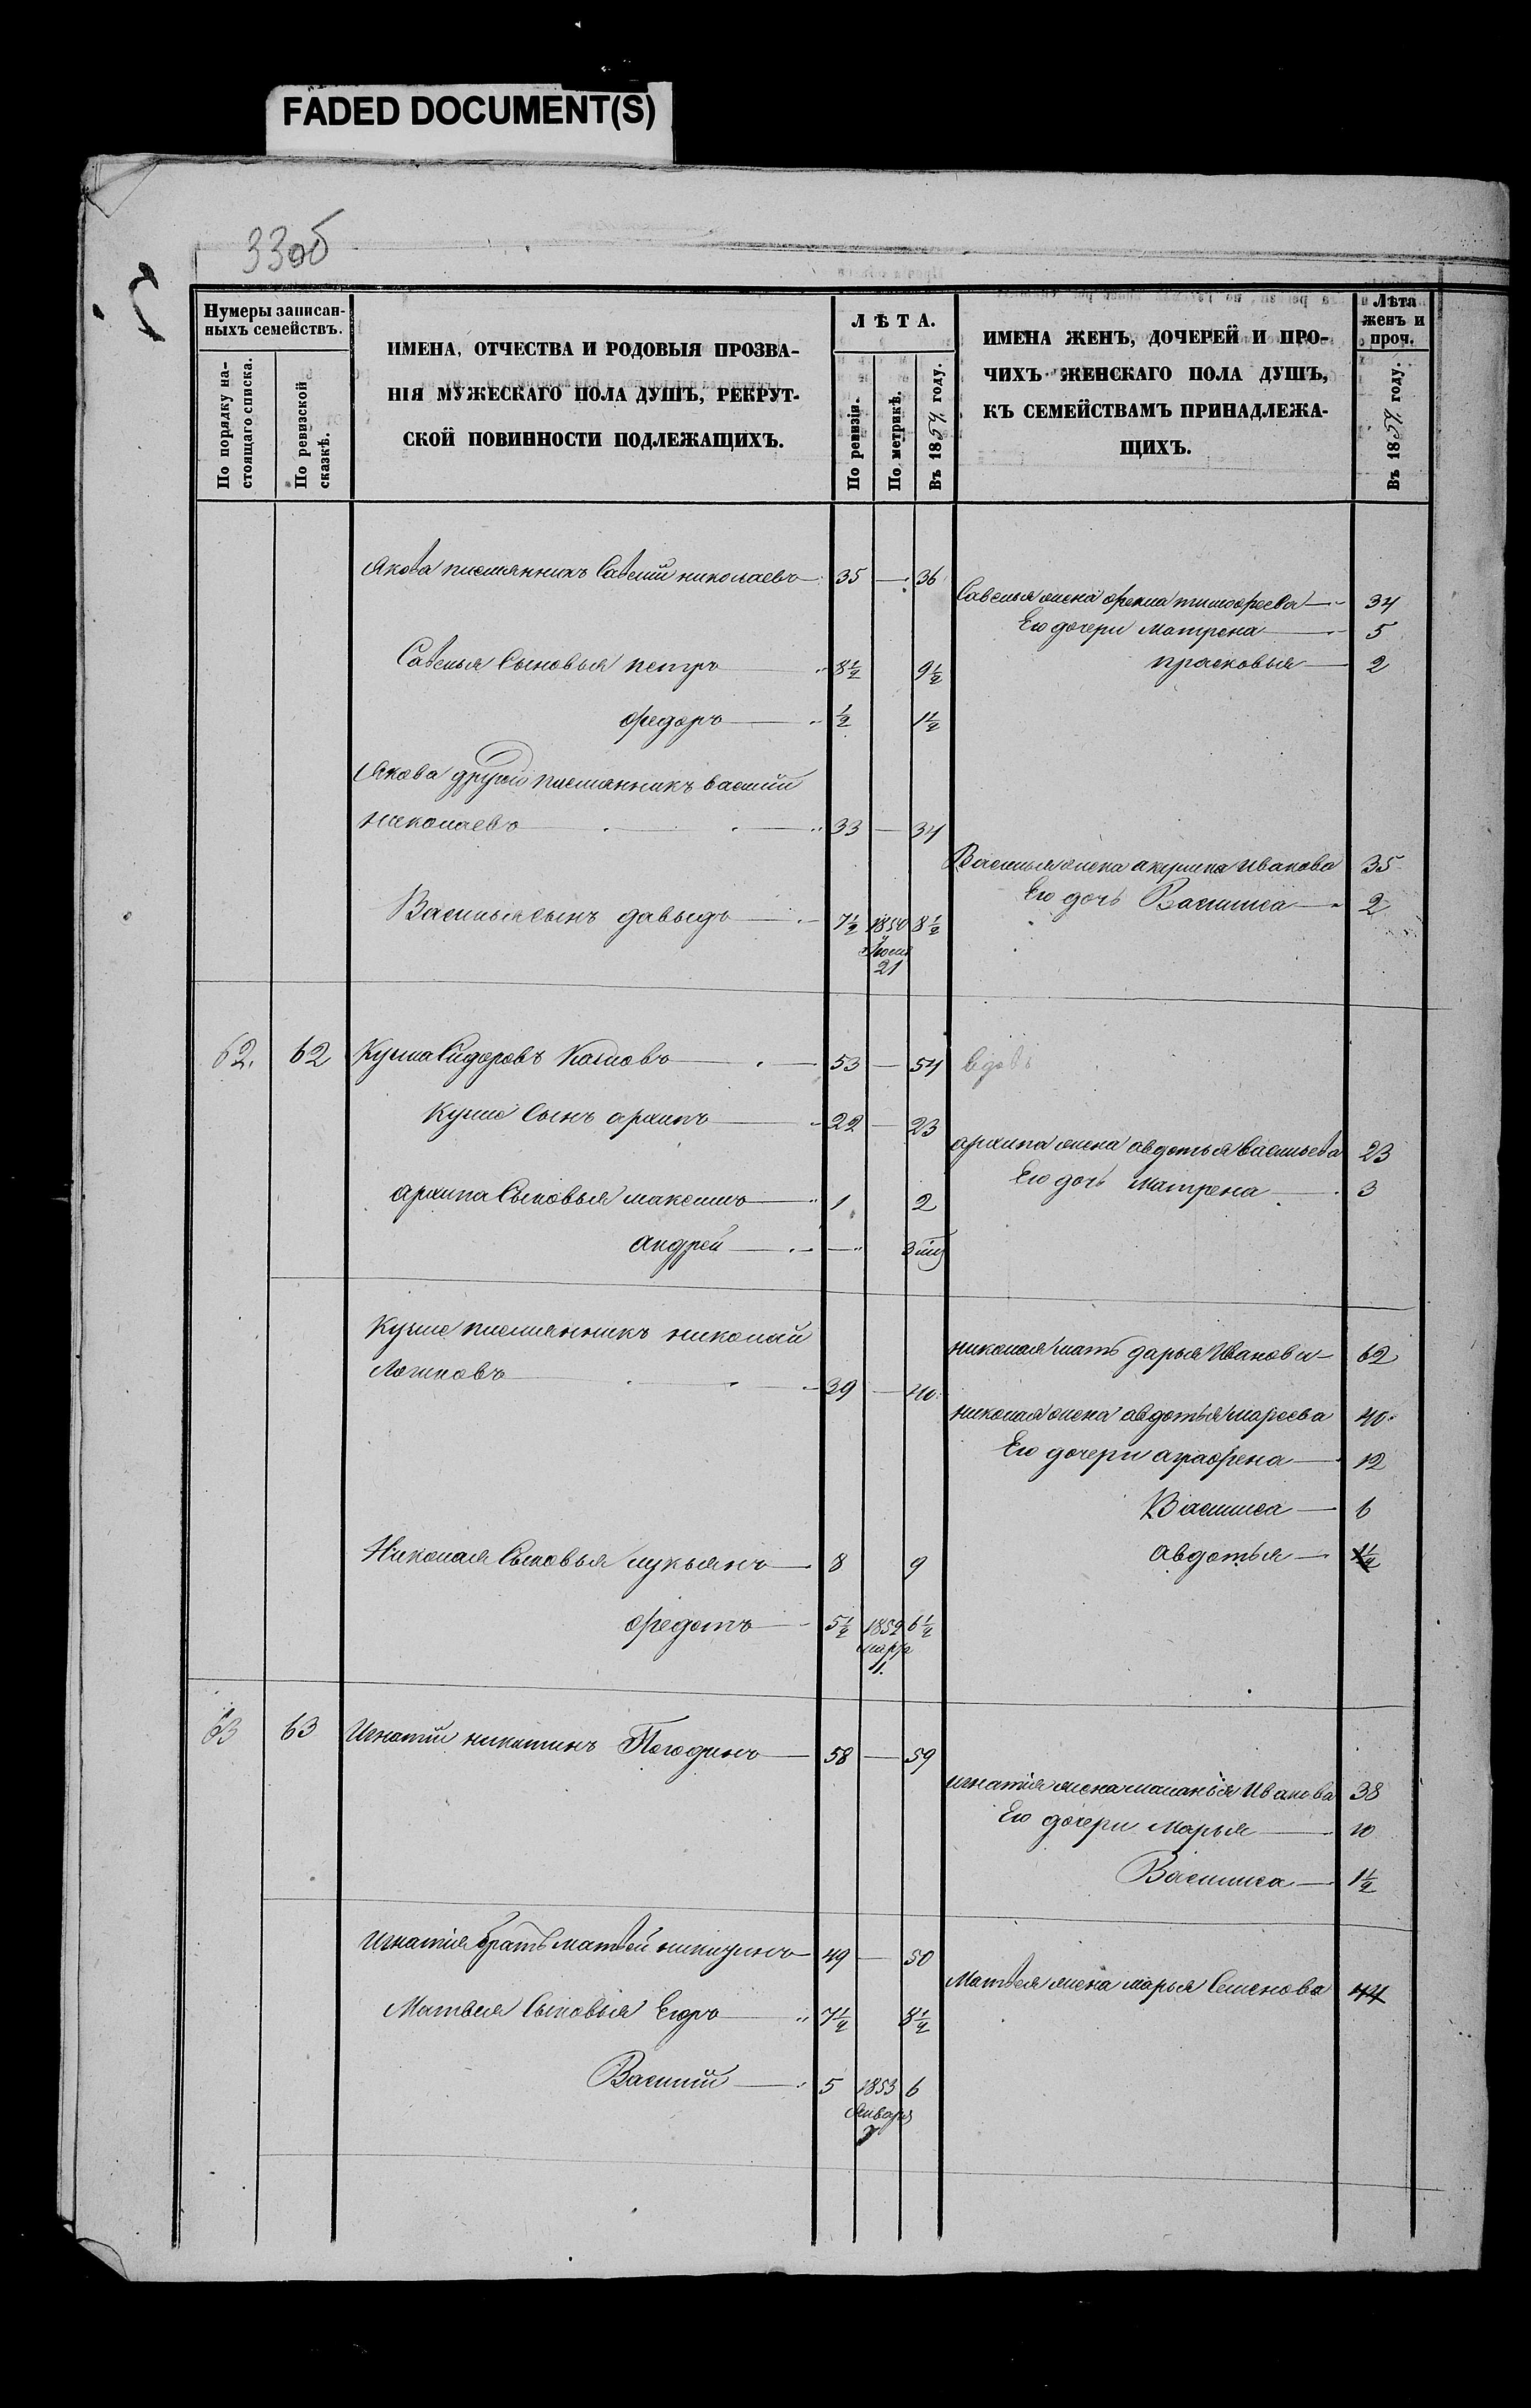 FADED DOCUMENT(S)
33об
Нумеры записан-
ныхъ семействъ.
По порядку на-
стоящаго списка.
По ревизской
сказкѣ.
ИМЕНА, ОТЧЕСТВА И РОДОВЫЯ ПРОЗВА-
НІЯ МУЖЕСКАГО ПОЛА ДУШЪ, РЕКРУТ-
СКОЙ ПОВИННОСТИ ПОДЛЕЖАЩИХЪ.
ЛѢТА.
По ревизіи.
По метрикѣ.
Въ 1859 году.
ИМЕНА ЖЕНЪ, ДОЧЕРЕЙ И ПРО-
ЧИХЪ ЖЕНСКАГО ПОЛА ДУШЪ,
КЪ СЕМЕЙСТВАМЪ ПРИНАДЛЕЖА-
ЩИХЪ.
Лѣта
женъ и
проч.
Въ 1859 году.
Якова племянникъ Савелий николаевъ 35 — 36
Савелья жена фекла тимофеева 34
Его дочери Матрена 5
Савелья Сыновья петръ 8½ 9½
прасковья 2
федоръ ½ 1½
Якова другой племянникъ василий
николаевъ 33 — 34
Василья жена акулина Иванова 35
Его дочь Василиса 2
Василья сынъ давыдъ 7½ 1850 8½
Июня
21
62. 62 Кузма Сидоровъ 53 — 54 вдовъ
Кузмы Сынъ архипъ 22 — 23
архипа жена авдотья Васильева 23
Его дочь матрена 3
архипа Сыновья максимъ 1 2
андрей — 3 м
Кузмы племянникъ николай
Логиновъ 39 — 40
николая мать дарья Иванова 62
николая жена авдотья 40
Его дочери аграфена 12
Василиса 6
авдотья 1½
Николая Сыновья лукьянъ 8 9
федотъ 5½ 1852 6½
марта
1.
63 63 Игнатий никитинъ Погодинъ 58 — 59
игнатия жена маланья Иванова 38
Его дочери Марья 10
Василиса 1½
Игнатия братъ матвей никитинъ 49 — 50
Матвея жена марья Семенова 44
Матвея Сыновья Егоръ 7½ 8½
Василий 5 1853 6
Января